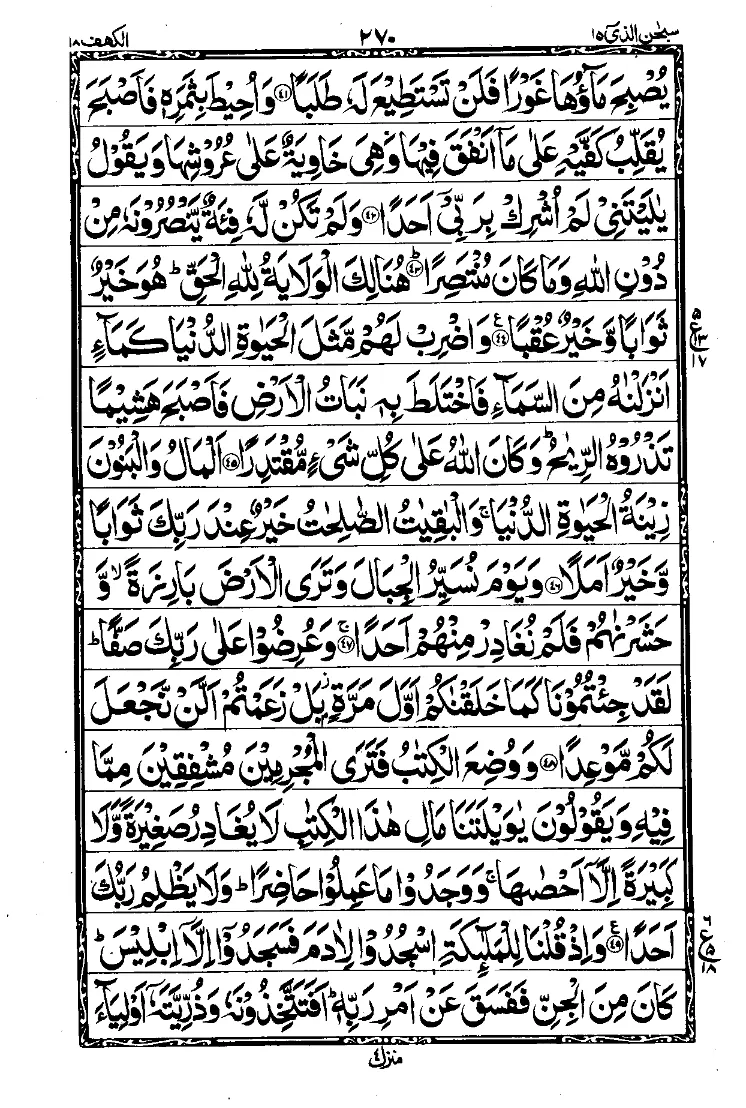 سبحٰن الذی ۱۵ ۲۷۰ الکهف ۱۸
یُصْبِحَ مَآؤُهَا غَوْرًا فَلَنْ تَسْتَطِیْعَ لَهٗ طَلَبًا ﴿۴۱﴾ وَاُحِیْطَ بِثَمَرِهٖ فَاَصْبَحَ
یُقَلِّبُ کَفَّیْهِ عَلٰی مَاۤ اَنْفَقَ فِیْهَا وَهِیَ خَاوِیَةٌ عَلٰی عُرُوْشِهَا وَیَقُوْلُ
یٰلَیْتَنِیْ لَمْ اُشْرِكْ بِرَبِّیْۤ اَحَدًا ﴿۴۲﴾ وَلَمْ تَکُنْ لَّهٗ فِئَةٌ یَّنْصُرُوْنَهٗ مِنْ
دُوْنِ اللّٰهِ وَمَا کَانَ مُنْتَصِرًا ﴿۴۳﴾ؕ هُنَالِكَ الْوَلَایَةُ لِلّٰهِ الْحَقِّ ؕ هُوَ خَیْرٌ
ثَوَابًا وَّخَیْرٌ عُقْبًا ﴿۴۴﴾ع وَاضْرِبْ لَهُمْ مَّثَلَ الْحَیٰوةِ الدُّنْیَا کَمَآءٍ
۵ ع ۱۳ ۱۷
اَنْزَلْنٰهُ مِنَ السَّمَآءِ فَاخْتَلَطَ بِهٖ نَبَاتُ الْاَرْضِ فَاَصْبَحَ هَشِیْمًا
تَذْرُوْهُ الرِّیٰحُ ؕ وَکَانَ اللّٰهُ عَلٰی کُلِّ شَیْءٍ مُّقْتَدِرًا ﴿۴۵﴾ اَلْمَالُ وَالْبَنُوْنَ
زِیْنَةُ الْحَیٰوةِ الدُّنْیَا ۚ وَالْبٰقِیٰتُ الصّٰلِحٰتُ خَیْرٌ عِنْدَ رَبِّكَ ثَوَابًا
وَّخَیْرٌ اَمَلًا ﴿۴۶﴾ وَیَوْمَ نُسَیِّرُ الْجِبَالَ وَتَرَی الْاَرْضَ بَارِزَةً ۙ وَّ
حَشَرْنٰهُمْ فَلَمْ نُغَادِرْ مِنْهُمْ اَحَدًا ﴿۴۷﴾ۚ وَعُرِضُوْا عَلٰی رَبِّكَ صَفًّا ؕ
لَقَدْ جِئْتُمُوْنَا کَمَا خَلَقْنٰکُمْ اَوَّلَ مَرَّةٍۭ ز بَلْ زَعَمْتُمْ اَلَّنْ نَّجْعَلَ
لَکُمْ مَّوْعِدًا ﴿۴۸﴾ وَوُضِعَ الْکِتٰبُ فَتَرَی الْمُجْرِمِیْنَ مُشْفِقِیْنَ مِمَّا
فِیْهِ وَیَقُوْلُوْنَ یٰوَیْلَتَنَا مَالِ هٰذَا الْکِتٰبِ لَا یُغَادِرُ صَغِیْرَةً وَّلَا
کَبِیْرَةً اِلَّاۤ اَحْصٰىهَا ۚ وَوَجَدُوْا مَا عَمِلُوْا حَاضِرًا ؕ وَلَا یَظْلِمُ رَبُّكَ
اَحَدًا ﴿۴۹﴾ع وَاِذْ قُلْنَا لِلْمَلٰٓئِکَةِ اسْجُدُوْا لِاٰدَمَ فَسَجَدُوْۤا اِلَّاۤ اِبْلِیْسَ ؕ
۶ ع ۵ ۱۸
کَانَ مِنَ الْجِنِّ فَفَسَقَ عَنْ اَمْرِ رَبِّهٖ ؕ اَفَتَتَّخِذُوْنَهٗ وَذُرِّیَّتَهٗۤ اَوْلِیَآءَ
منزل ۴